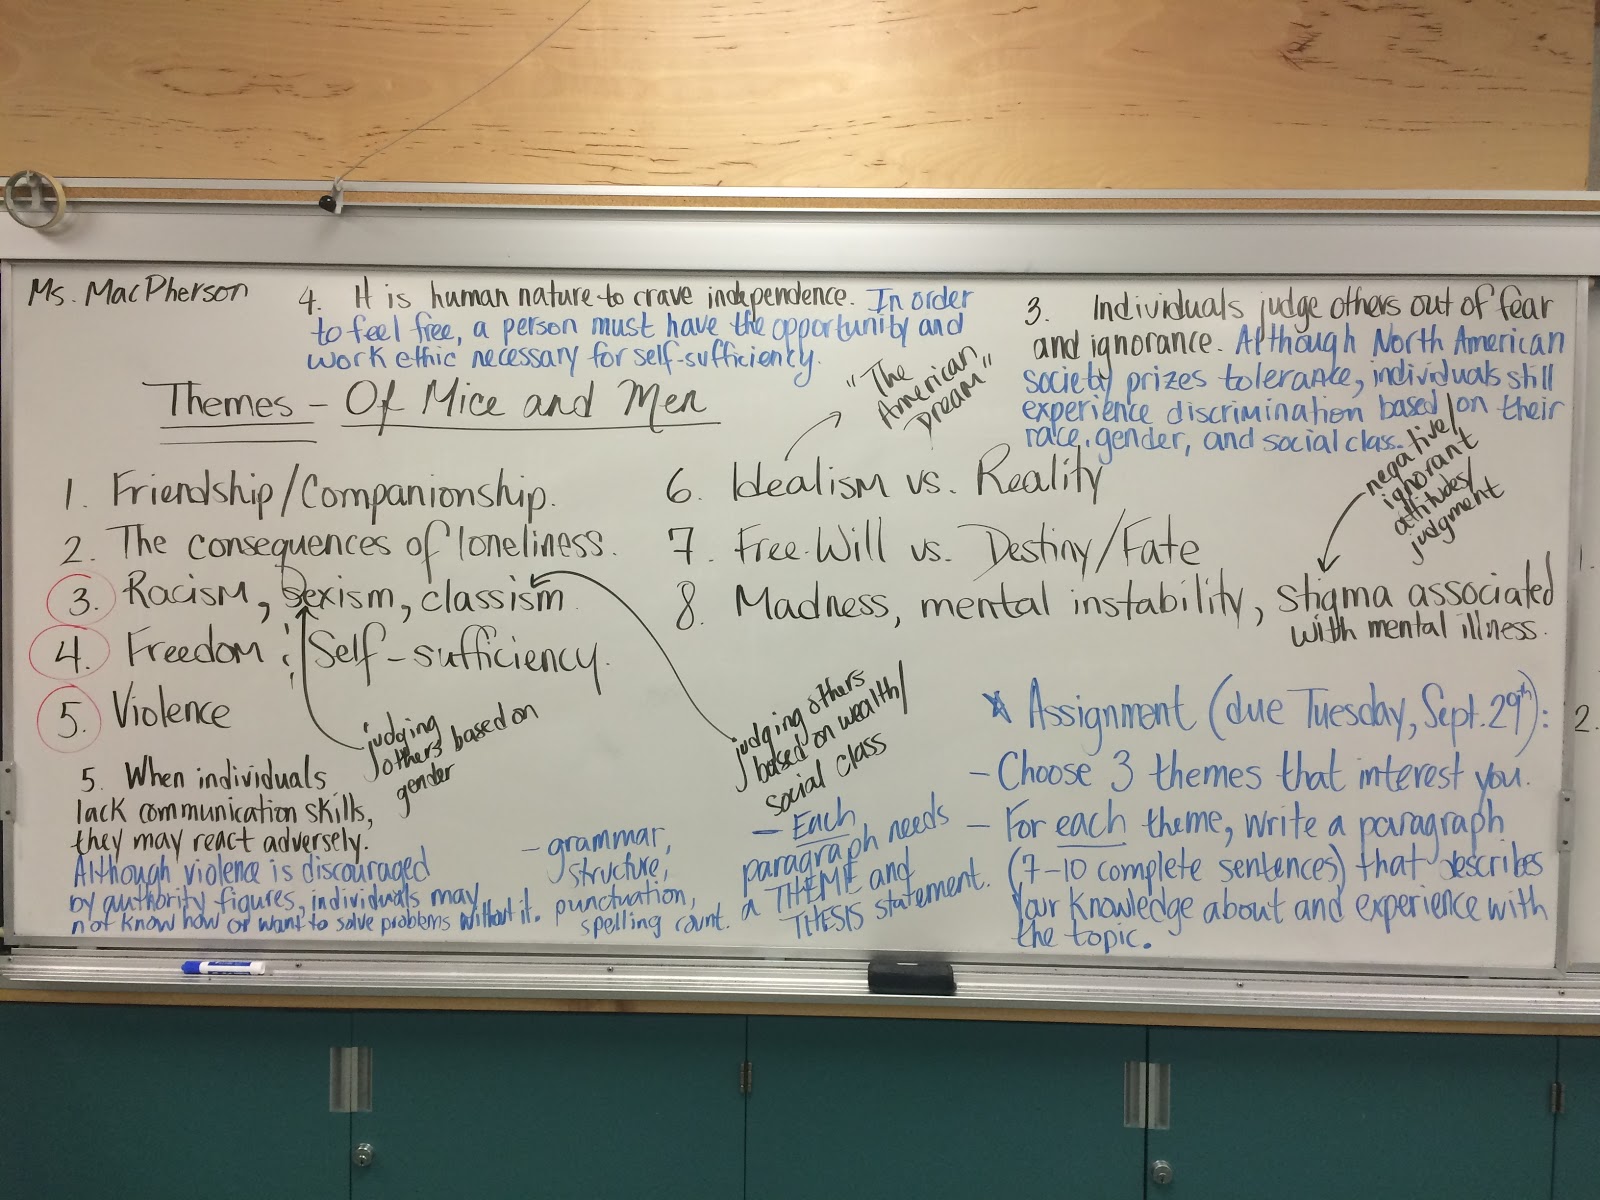 Ms. MacPherson
4. It is human nature to crave independence. In order
to feel free, a person must have the opportunity and
work ethic necessary for self-sufficiency.
3. Individuals judge others out of fear
and ignorance. Although North American
society prizes tolerance, individuals still
experience discrimination based on their
race, gender, and social class.
Themes - Of Mice and Men
1. Friendship/Companionship.
2. The consequences of loneliness.
3. Racism, Sexism, classism
4. Freedom & Self-sufficiency.
5. Violence
"The
American
Dream"
6. Idealism vs. Reality
7. Free Will vs. Destiny/Fate
8. Madness, mental instability, stigma associated
with mental illness.
negative/
ignorant
attitudes/
judgment
judging
others based on
gender
judging others
based on wealth/
social class
5. When individuals
lack communication skills,
they may react adversely.
Although violence is discouraged
by authority figures, individuals may
not know how or want to solve problems without it.
- grammar,
structure,
punctuation,
spelling count.
- Each
paragraph needs
a THEME and
THESIS statement.
* Assignment (due Tuesday, Sept. 29th):
- Choose 3 themes that interest you.
- For each theme, write a paragraph
(7-10 complete sentences) that describes
your knowledge about and experience with
the topic.
1.
2.